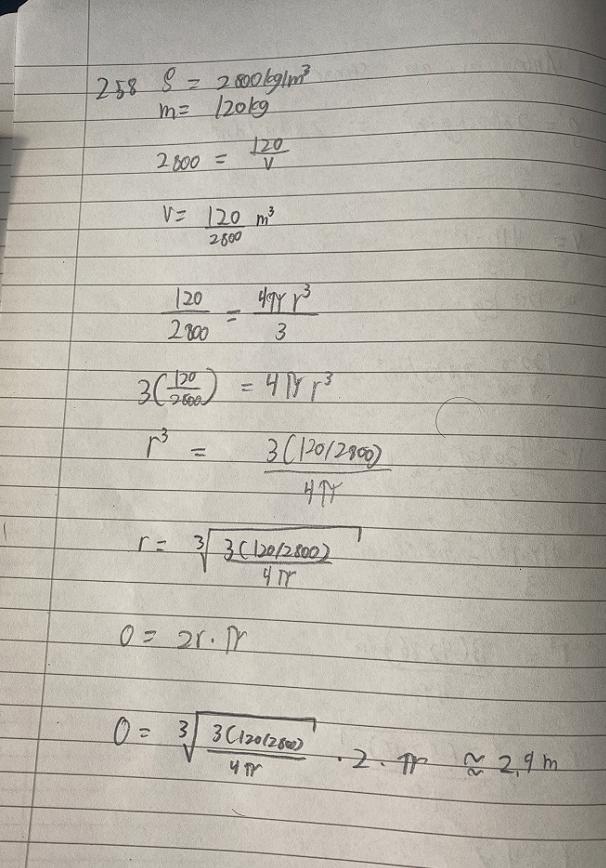 258 ρ = 2800kg/m³
m= 120kg
2800 = 120/V
V= 120/2800 m³
120/2800 = 4πr³/3
3(120/2800) = 4πr³
r³ = 3(120/2800)/4π
r= ³√(3(120/2800)/4π)
O= 2r·π
O= ³√(3(120/2800)/4π) ·2·π ≈ 2,9 m